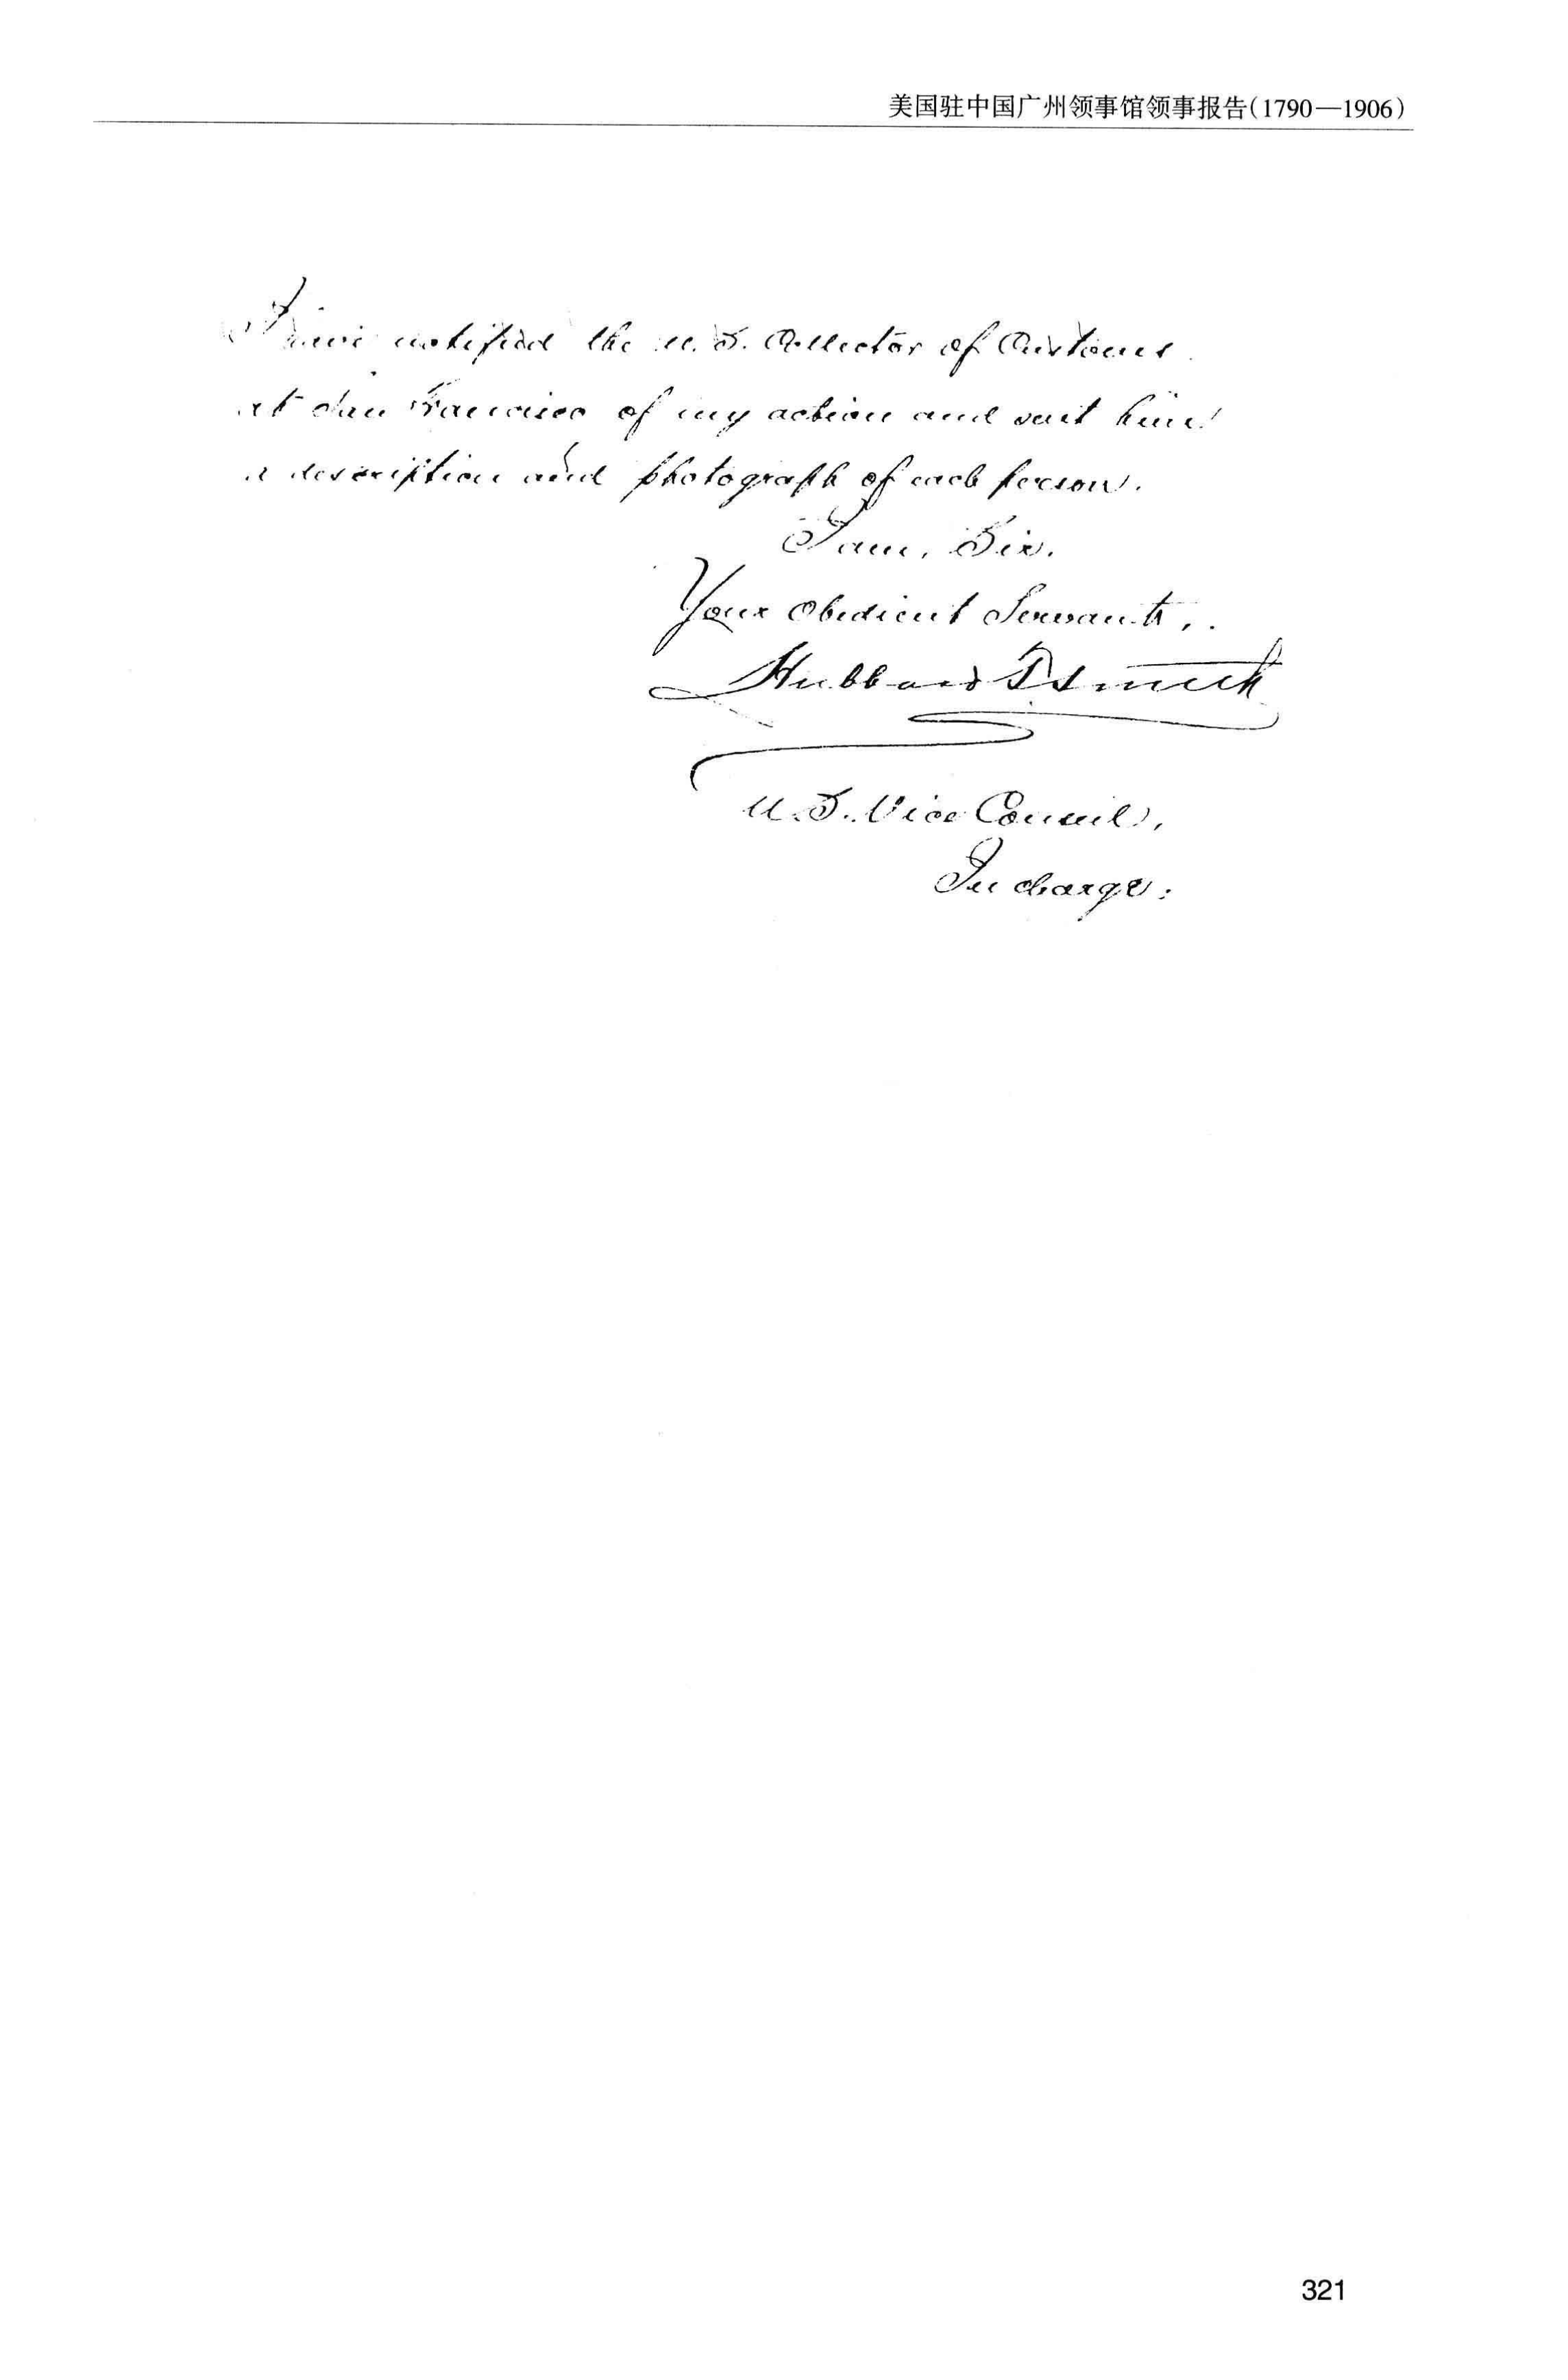 美国驻中国广州领事馆领事报告(1790—1906)
I have notified the U.S. Collector of Customs
at San Francisco of my action and sent him
a description and photograph of each person.
I am, Sir,
Your Obedient Servant,
Hubbard T. Smith
U.S. Vice Consul,
In charge.
321